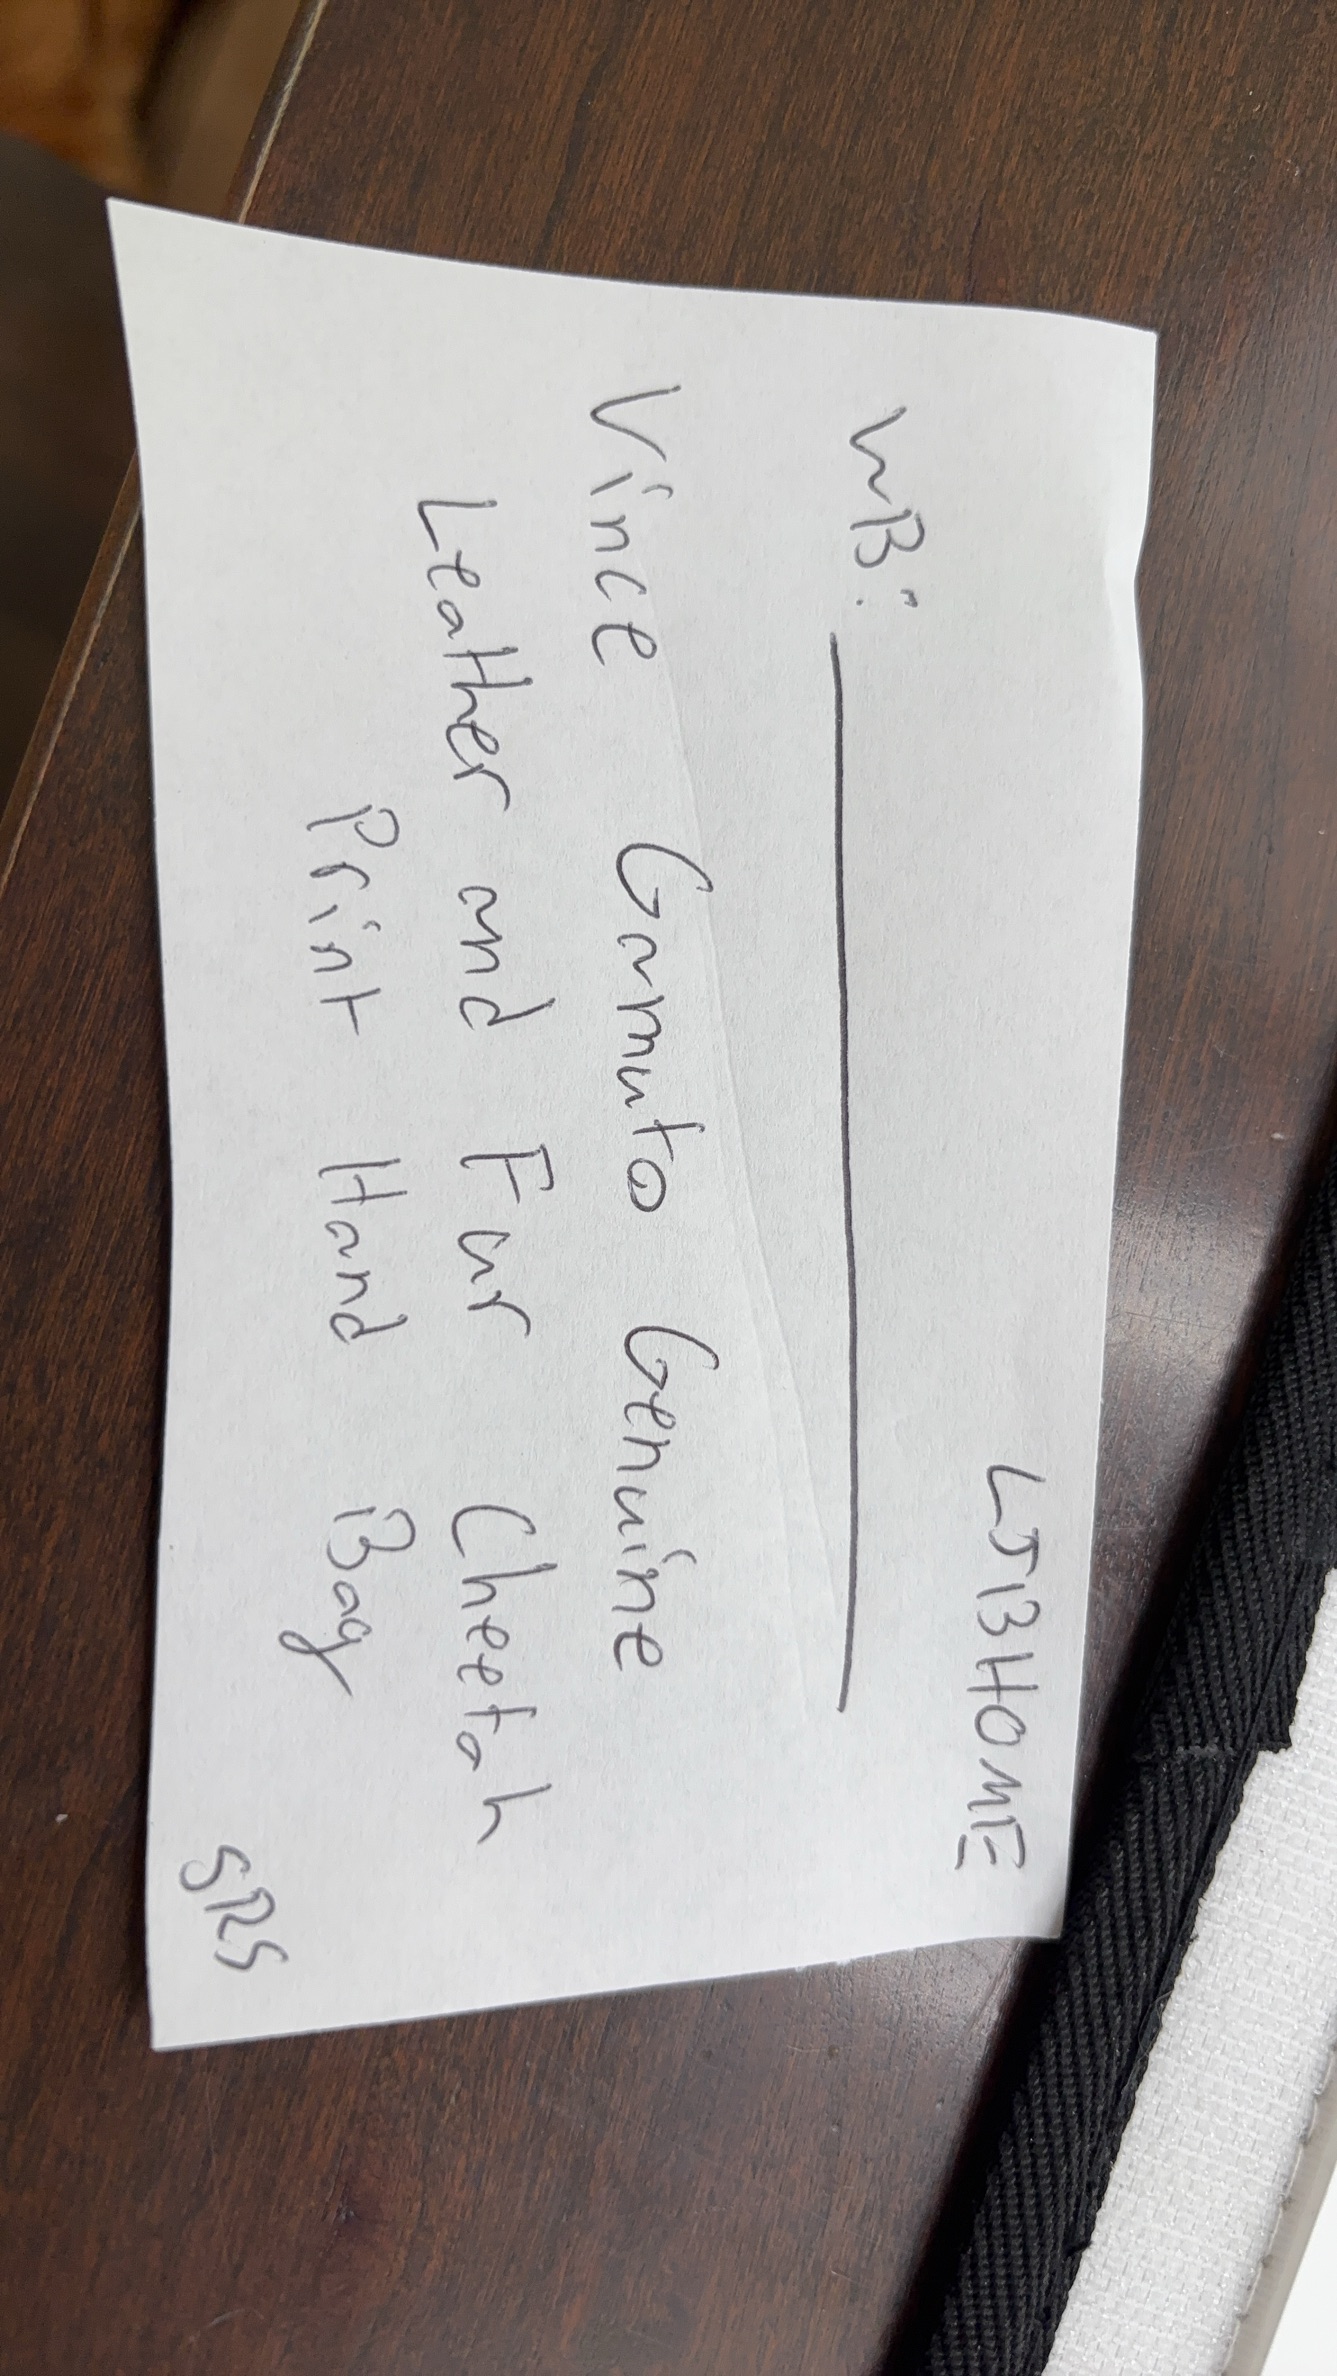 LJBHOME
WB:
Vince Camuto Genuine
Leather and Fur Cheetah
Print Hand Bag
SRS